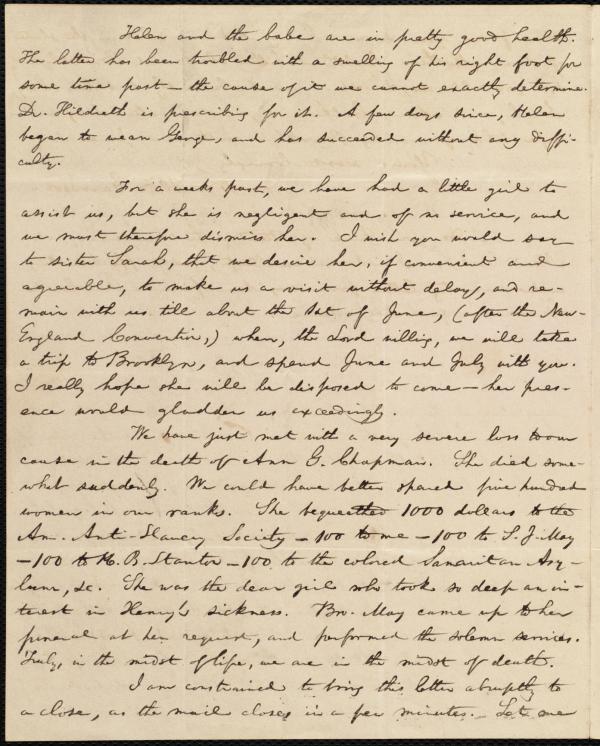 Helen and the babe are in pretty good health.
The latter has been troubled with a swelling of his right foot for
some time past — the cause of it we cannot exactly determine.
Dr. Hildreth is prescribing for it. A few days since, Helen
began to wean George, and has succeeded without any diffi-
culty.
For a weeks past, we have had a little girl to
assist us, but she is negligent and of no service, and
we must therefore dismiss her. I wish you would say
to sister Sarah, that we desire her, if convenient and
agreeable, to make us a visit without delay, and re-
main with us till about the 1st of June, (after the New-
England Convention,) when, the Lord willing, we will take
a trip to Brooklyn, and spend June and July with you.
I really hope she will be disposed to come — her pres-
ence would gladden us exceedingly.
We have just met with a very severe loss to our
cause in the death of Ann G. Chapman. She died some-
what suddenly. We could have better spared five hundred
women in our ranks. She bequeathed 1000 dollars to the
Am. Anti-Slavery Society — 100 to me — 100 to S. J. May
— 100 to H. B. Stanton — 100 to the colored Samaritan Asy-
lum, &c. She was the dear girl who took so deep an in-
terest in Henry's sickness. Bro. May came up to her
funeral at her request, and performed the solemn services.
Truly, in the midst of life, we are in the midst of death.
I am constrained to bring this letter abruptly to
a close, as the mail closes in a few minutes. Let me